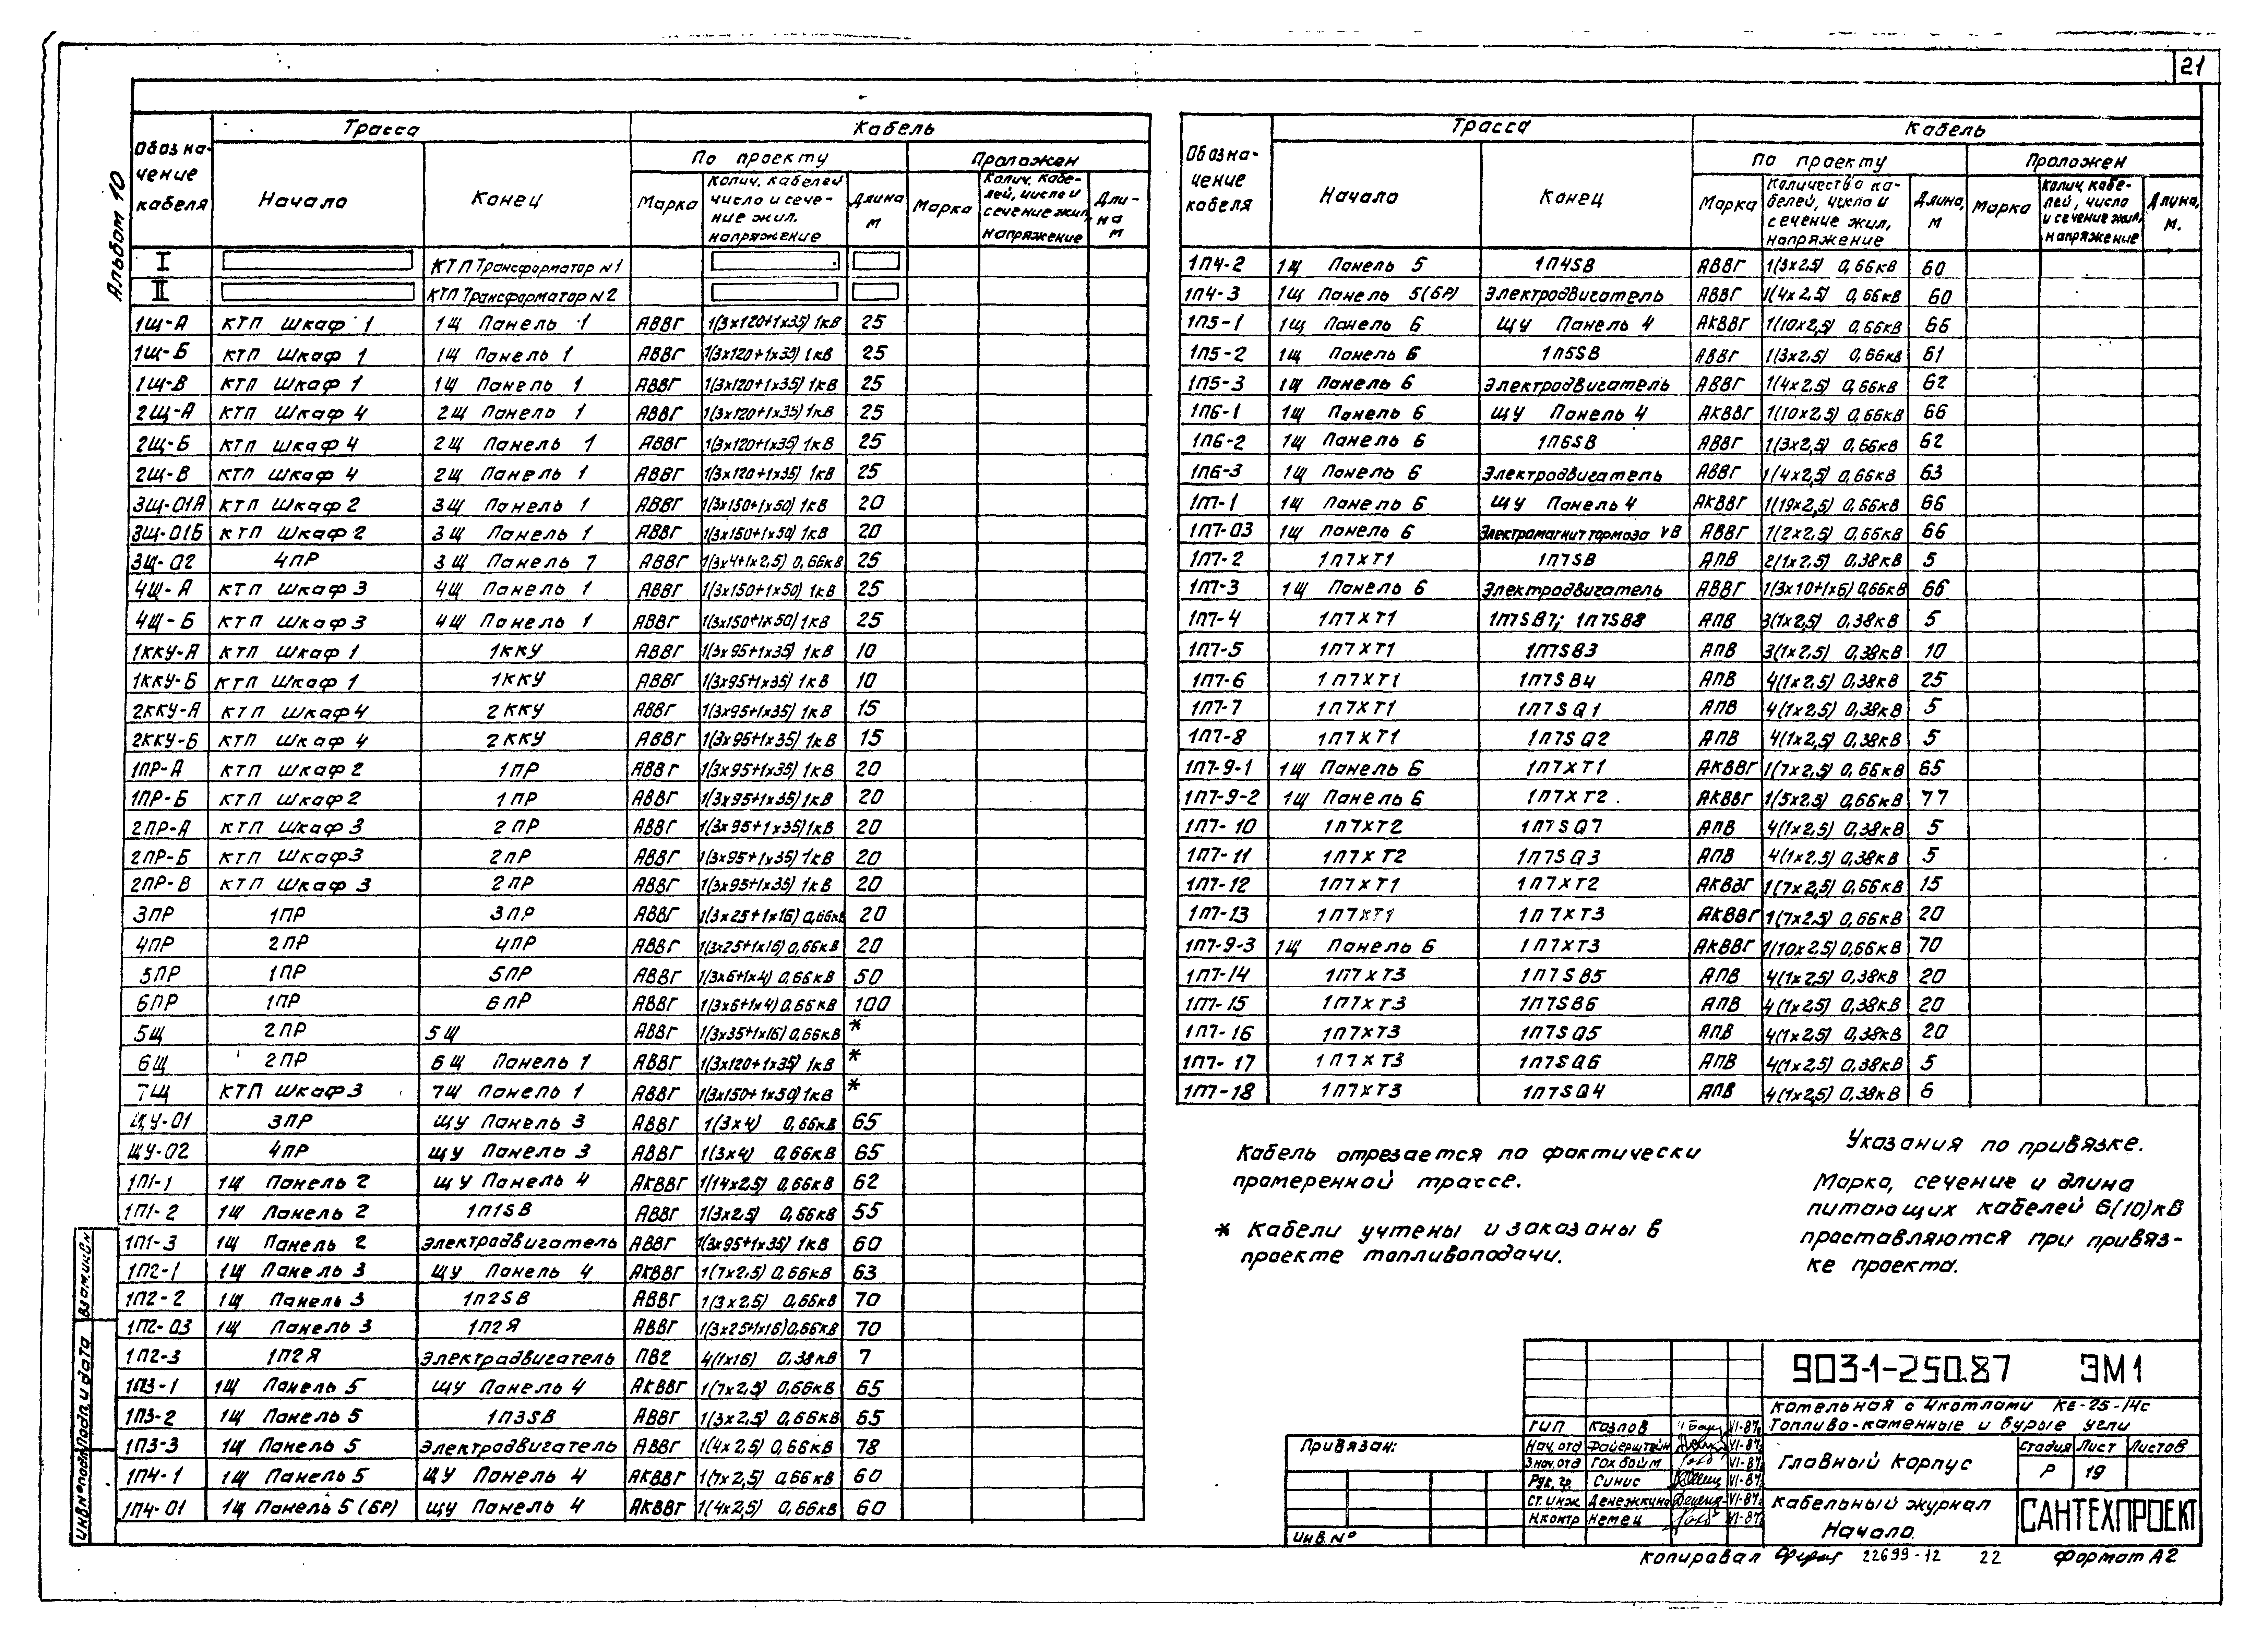 21
Альбом 10
Обозна-
чение
кабеля
Трасса
Кабель
Начало
Конец
По проекту
Проложен
Марка
Колич. кабелей
число и сече-
ние жил,
напряжение
Длина
м
Марка
Колич. кабе-
лей, число и
сечение жил,
напряжение
Дли-
на
м
I КТП Трансформатор N1
II КТП Трансформатор N2
1Щ-А КТП Шкаф 1 1Щ Панель 1 АВВГ 1(3х120+1х35) 1кВ 25
1Щ-Б КТП Шкаф 1 1Щ Панель 1 АВВГ 1(3х120+1х35) 1кВ 25
1Щ-В КТП Шкаф 1 1Щ Панель 1 АВВГ 1(3х120+1х35) 1кВ 25
2Щ-А КТП Шкаф 4 2Щ Панель 1 АВВГ 1(3х120+1х35) 1кВ 25
2Щ-Б КТП Шкаф 4 2Щ Панель 1 АВВГ 1(3х120+1х35) 1кВ 25
2Щ-В КТП Шкаф 4 2Щ Панель 1 АВВГ 1(3х120+1х35) 1кВ 25
3Щ-01А КТП Шкаф 2 3Щ Панель 1 АВВГ 1(3х150+1х50) 1кВ 20
3Щ-01Б КТП Шкаф 2 3Щ Панель 1 АВВГ 1(3х150+1х50) 1кВ 20
3Щ-02 4ПР 3Щ Панель 7 АВВГ 1(3х4+1х2,5) 0,66кВ 26
4Щ-А КТП Шкаф 3 4Щ Панель 1 АВВГ 1(3х150+1х50) 1кВ 25
4Щ-Б КТП Шкаф 3 4Щ Панель 1 АВВГ 1(3х150+1х50) 1кВ 25
1ККУ-А КТП Шкаф 1 1ККУ АВВГ 1(3х95+1х35) 1кВ 10
1ККУ-Б КТП Шкаф 1 1ККУ АВВГ 1(3х95+1х35) 1кВ 10
2ККУ-А КТП Шкаф 4 2ККУ АВВГ 1(3х95+1х35) 1кВ 15
2ККУ-Б КТП Шкаф 4 2ККУ АВВГ 1(3х95+1х35) 1кВ 15
1ПР-А КТП Шкаф 2 1ПР АВВГ 1(3х95+1х35) 1кВ 20
1ПР-Б КТП Шкаф 2 1ПР АВВГ 1(3х95+1х35) 1кВ 20
2ПР-А КТП Шкаф 3 2ПР АВВГ 1(3х95+1х35) 1кВ 20
2ПР-Б КТП Шкаф 3 2ПР АВВГ 1(3х95+1х35) 1кВ 20
2ПР-В КТП Шкаф 3 2ПР АВВГ 1(3х95+1х35) 1кВ 20
3ПР 1ПР 3ПР АВВГ 1(3х25+1х16) 0,66кВ 20
4ПР 2ПР 4ПР АВВГ 1(3х25+1х16) 0,66кВ 20
5ПР 1ПР 5ПР АВВГ 1(3х6+1х4) 0,66кВ 50
6ПР 1ПР 6ПР АВВГ 1(3х6+1х4) 0,66кВ 100
5Щ 2ПР 5Щ АВВГ 1(3х35+1х16) 0,66кВ *
6Щ 2ПР 6Щ Панель 1 АВВГ 1(3х120+1х35) 1кВ *
7Щ КТП Шкаф 3 7Щ Панель 1 АВВГ 1(3х150+1х50) 1кВ *
ЩУ-01 3ПР ЩУ Панель 3 АВВГ 1(3х4) 0,66кВ 65
ЩУ-02 4ПР ЩУ Панель 3 АВВГ 1(3х4) 0,66кВ 65
1П1-1 1Щ Панель 2 ЩУ Панель 4 АКВВГ 1(14х2,5) 0,66кВ 62
1П1-2 1Щ Панель 2 1П1SB АВВГ 1(3х2,5) 0,66кВ 55
1П1-3 1Щ Панель 2 Электродвигатель АВВГ 1(3х95+1х35) 1кВ 60
1П2-1 1Щ Панель 3 ЩУ Панель 4 АКВВГ 1(7х2,5) 0,66кВ 63
1П2-2 1Щ Панель 3 1П2SB АВВГ 1(3х2,5) 0,66кВ 70
1П2-03 1Щ Панель 3 1П2Я АВВГ 1(3х25+1х16) 0,66кВ 70
1П2-3 1П2Я Электродвигатель ПВ2 4(1х16) 0,38кВ 7
1П3-1 1Щ Панель 5 ЩУ Панель 4 АКВВГ 1(7х2,5) 0,66кВ 65
1П3-2 1Щ Панель 5 1П3SB АВВГ 1(3х2,5) 0,66кВ 65
1П3-3 1Щ Панель 5 Электродвигатель АВВГ 1(4х2,5) 0,66кВ 78
1П4-1 1Щ Панель 5 ЩУ Панель 4 АКВВГ 1(7х2,5) 0,66кВ 60
1П4-01 1Щ Панель 5 (БР) ЩУ Панель 4 АКВВГ 1(4х2,5) 0,66кВ 60
Обозна-
чение
кабеля
Трасса
Кабель
Начало
Конец
По проекту
Проложен
Марка
Количество ка-
белей, число и
сечение жил,
напряжение
Длина,
м
Марка
Колич. кабе-
лей, число
и сечение жил,
напряжение
Длина,
м.
1П4-2 1Щ Панель 5 1П4SB АВВГ 1(3х2,5) 0,66кВ 60
1П4-3 1Щ Панель 5(БР) Электродвигатель АВВГ 1(4х2,5) 0,66кВ 60
1П5-1 1Щ Панель 6 ЩУ Панель 4 АКВВГ 1(10х2,5) 0,66кВ 66
1П5-2 1Щ Панель 6 1П5SB АВВГ 1(3х2,5) 0,66кВ 61
1П5-3 1Щ Панель 6 Электродвигатель АВВГ 1(4х2,5) 0,66кВ 62
1П6-1 1Щ Панель 6 ЩУ Панель 4 АКВВГ 1(10х2,5) 0,66кВ 66
1П6-2 1Щ Панель 6 1П6SB АВВГ 1(3х2,5) 0,66кВ 62
1П6-3 1Щ Панель 6 Электродвигатель АВВГ 1(4х2,5) 0,66кВ 63
1П7-1 1Щ Панель 6 ЩУ Панель 4 АКВВГ 1(19х2,5) 0,66кВ 66
1П7-03 1Щ Панель 6 Электромагнит тормоза YB АВВГ 1(2х2,5) 0,66кВ 66
1П7-2 1П7ХТ1 1П7SB АПВ 2(1х2,5) 0,38кВ 5
1П7-3 1Щ Панель 6 Электродвигатель АВВГ 1(3х10+1х6) 0,66кВ 66
1П7-4 1П7ХТ1 1П7SB7; 1П7SB8 АПВ 3(1х2,5) 0,38кВ 5
1П7-5 1П7ХТ1 1П7SB3 АПВ 3(1х2,5) 0,38кВ 10
1П7-6 1П7ХТ1 1П7SB4 АПВ 4(1х2,5) 0,38кВ 25
1П7-7 1П7ХТ1 1П7SQ1 АПВ 4(1х2,5) 0,38кВ 5
1П7-8 1П7ХТ1 1П7SQ2 АПВ 4(1х2,5) 0,38кВ 5
1П7-9-1 1Щ Панель 6 1П7ХТ1 АКВВГ 1(7х2,5) 0,66кВ 65
1П7-9-2 1Щ Панель 6 1П7ХТ2 АКВВГ 1(5х2,5) 0,66кВ 77
1П7-10 1П7ХТ2 1П7SQ7 АПВ 4(1х2,5) 0,38кВ 5
1П7-11 1П7ХТ2 1П7SQ3 АПВ 4(1х2,5) 0,38кВ 5
1П7-12 1П7ХТ1 1П7ХТ2 АКВВГ 1(7х2,5) 0,66кВ 15
1П7-13 1П7ХТ1 1П7ХТ3 АКВВГ 1(7х2,5) 0,66кВ 20
1П7-9-3 1Щ Панель 6 1П7ХТ3 АКВВГ 1(10х2,5) 0,66кВ 70
1П7-14 1П7ХТ3 1П7SB5 АПВ 4(1х2,5) 0,38кВ 20
1П7-15 1П7ХТ3 1П7SB6 АПВ 4(1х2,5) 0,38кВ 20
1П7-16 1П7ХТ3 1П7SQ5 АПВ 4(1х2,5) 0,38кВ 20
1П7-17 1П7ХТ3 1П7SQ6 АПВ 4(1х2,5) 0,38кВ 5
1П7-18 1П7ХТ3 1П7SQ4 АПВ 4(1х2,5) 0,38кВ 6
Кабель отрезается по фактически
промеренной трассе.
* Кабели учтены и заказаны в
проекте топливоподачи.
Указания по привязке.
Марка, сечение и длина
питающих кабелей 6(10)кВ
проставляются при привяз-
ке проекта.
Взам.инв.N
Подп. и дата
Инв.№подл
Привязан:
Инв.№
903-1-250.87 ЭМ1
Котельная с 4котлами КЕ-25-14с
Топливо-каменные и бурые угли
ГИП Козлов VI-87
Нач.отд Файерштейн VI-87
З.нач.отд Гохбойм VI-87
Рук. гр. Синис VI-87
Ст.инж Денежкина VI-87
Н.контр Немец VI-87
Главный корпус
Стадия Лист Листов
Р 19
Кабельный журнал
Начало.
САНТЕХПРОЕКТ
Копировал 22699-12 22 Формат А2